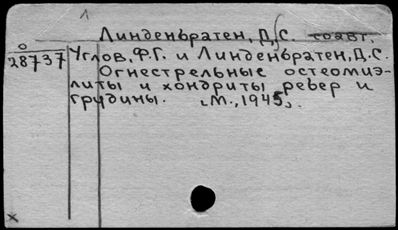 1
Линденбратен, Д. С. соавт.
о
28737 Углов, Ф.Г. и Линденбратен, Д.С.
Огнестрельные остеомиэ-
литы и хондриты ребер и
грудины. „М., 1945„.
x